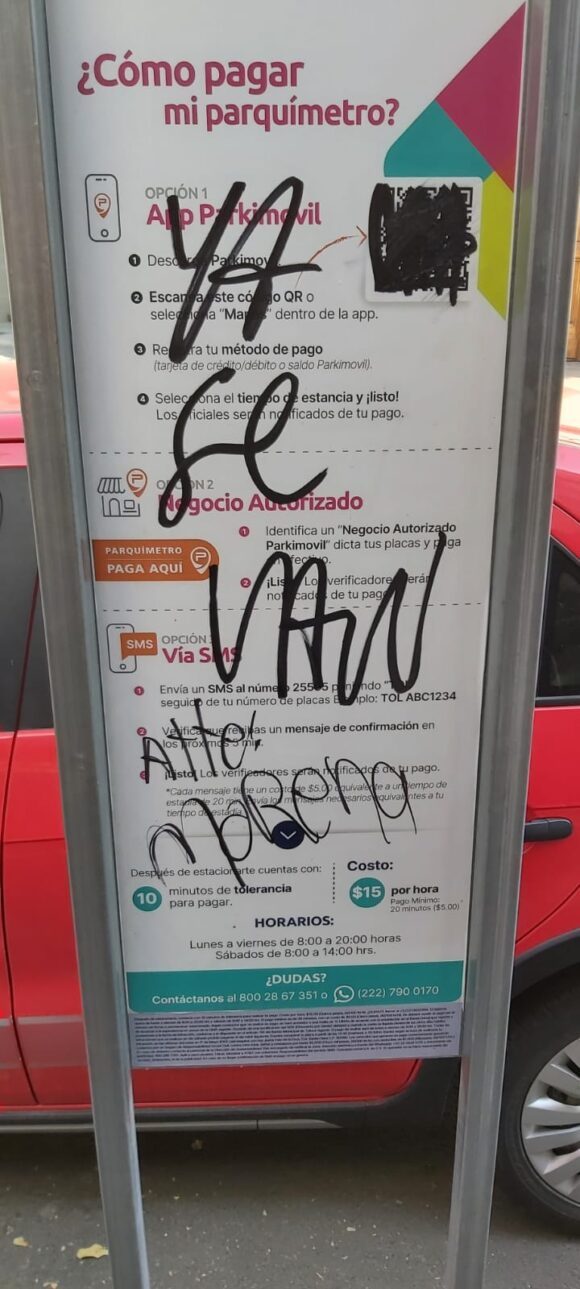 ¿Cómo pagar
mi parquímetro?
OPCIÓN 1
App Parkimovil
1 Parkimovil
2 Escanea este código QR o
selecciona "Mapas" dentro de la app.
3 Registra tu método de pago
(tarjeta de crédito/débito o saldo Parkimovil).
4 Selecciona el tiempo de estancia y ¡listo!
Los oficiales serán notificados de tu pago.
YA
SE
VAN
OPCIÓN 2
Negocio Autorizado
PARQUÍMETRO
PAGA AQUÍ
1 Identifica un "Negocio Autorizado
Parkimovil" dicta tus placas y paga
en efectivo.
2 ¡Listo! Los verificadores serán
notificados de tu pago.
SMS
OPCIÓN 3
Vía SMS
1 Envía un SMS al número
seguido de tu número de placas Ejemplo: TOL ABC1234
2 Verifica que recibas un mensaje de confirmación en
los próximos 5 min.
¡Listo! Los verificadores serán notificados de tu pago.
*Cada mensaje tiene un costo de $5.00 equivalente a un tiempo de
estadía de 20 min. Envía los mensajes necesarios equivalentes a tu
tiempo de estadía.
Después de estacionarte cuentas con:
10 minutos de tolerancia
para pagar.
Costo:
$15 por hora
Pago Mínimo:
20 minutos ($5.00)
HORARIOS:
Lunes a viernes de 8:00 a 20:00 horas
Sábados de 8:00 a 14:00 hrs.
¿DUDAS?
Contáctanos al 800 28 67 351 o (222) 790 0170